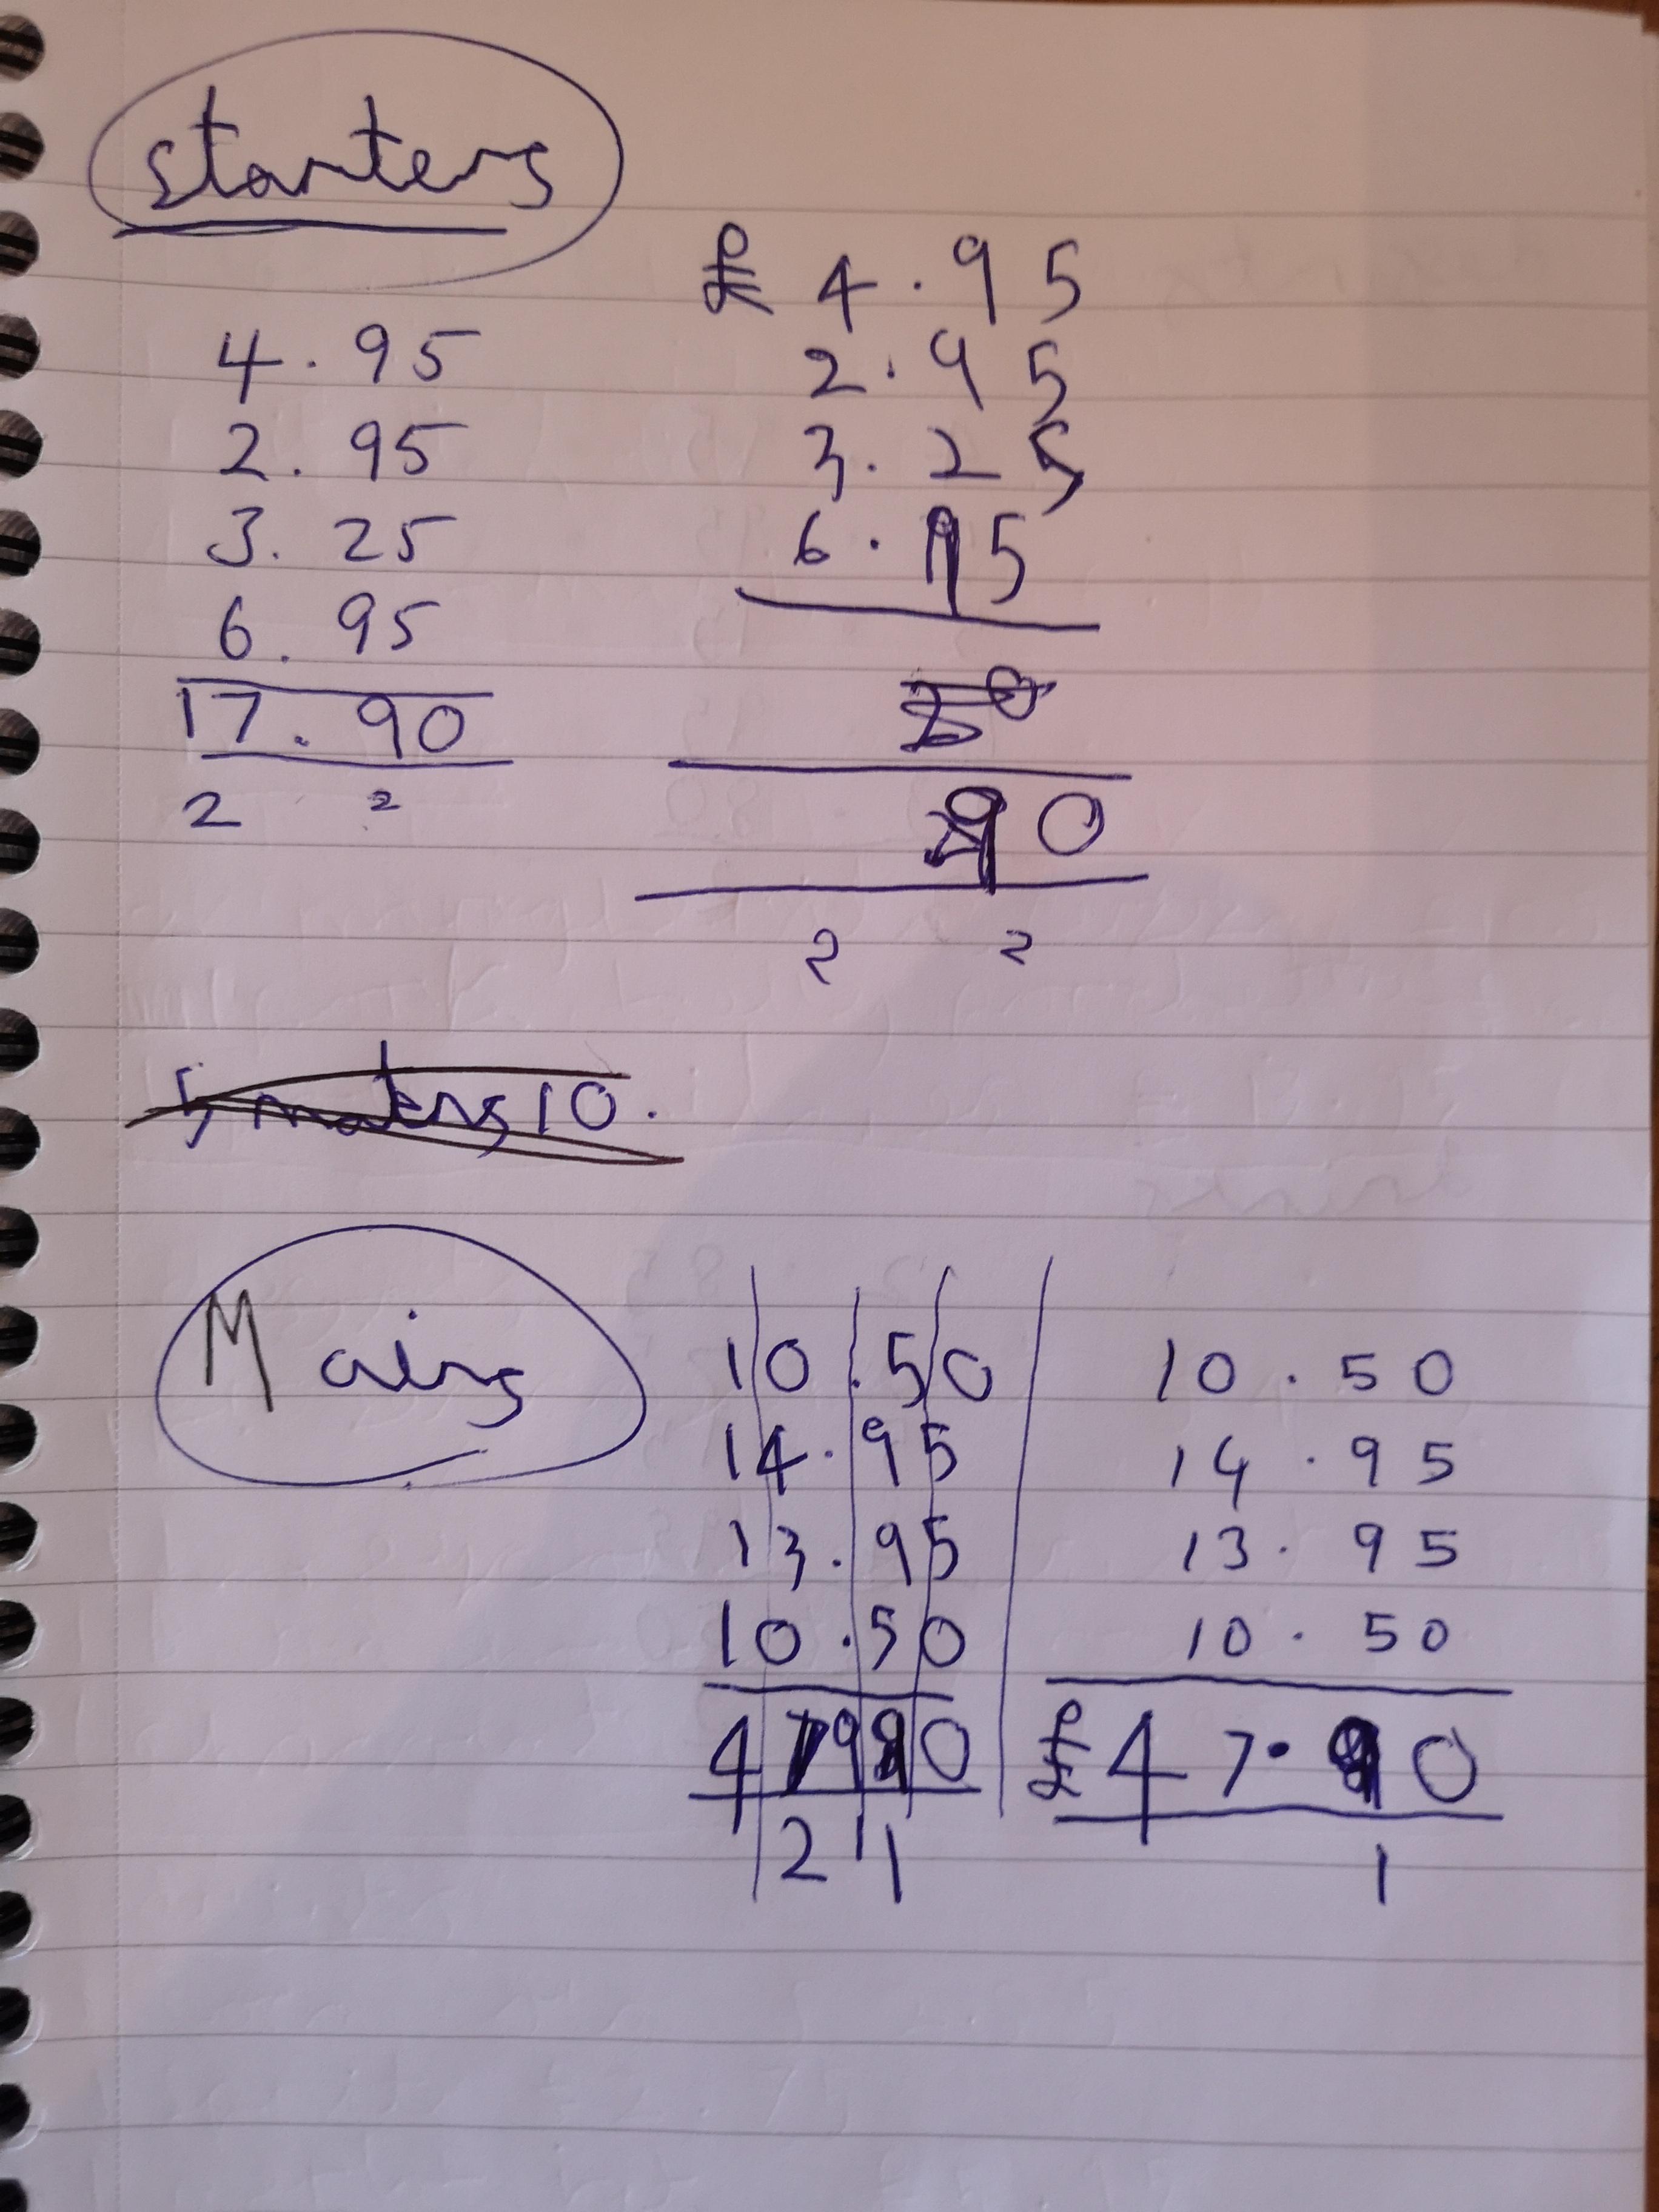 starters
4.95
2.95
3.25
6.95
17.90
2 2
£4.95
2.95
3.25
6.95
90
2 2
Mains
10.50
14.95
13.95
10.50
2 1
10.50
14.95
13.95
10.50
£47.90
1